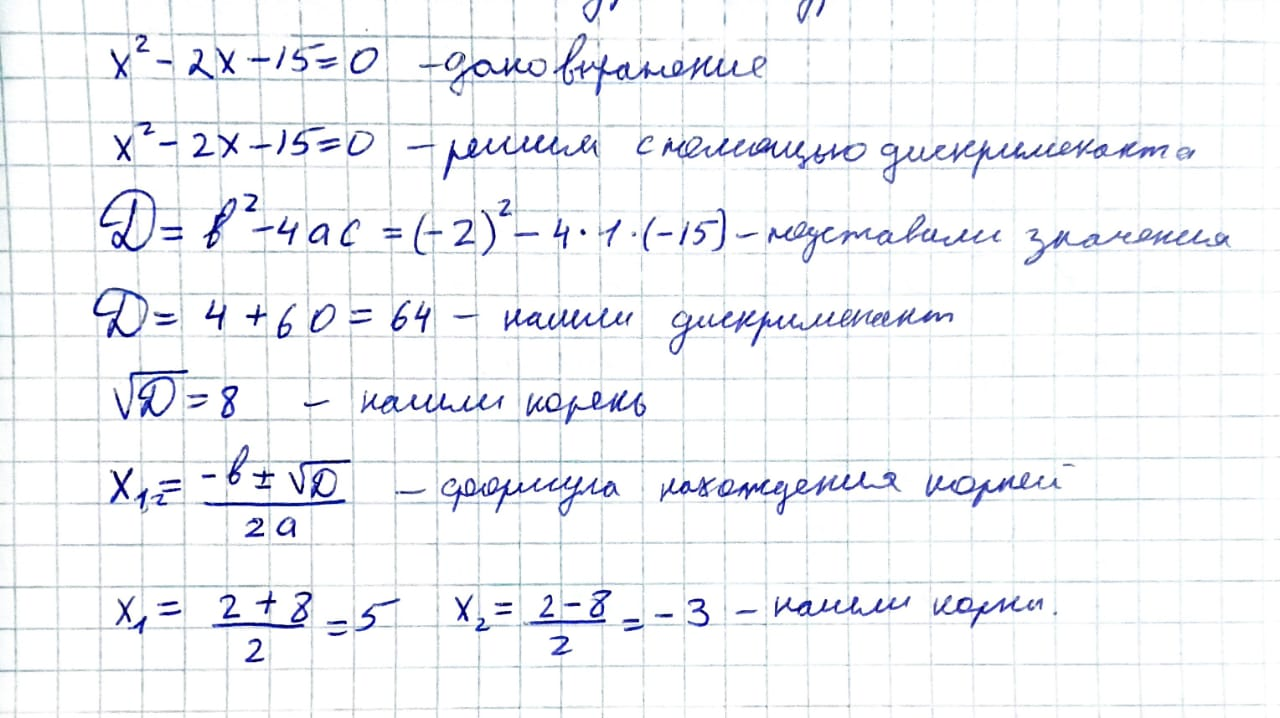 x² - 2x - 15 = 0 - дано выражение
x² - 2x - 15 = 0 - решим с помощью дискриминанта
D = b² - 4ac = (-2)² - 4 · 1 · (-15) - подставили значения
D = 4 + 60 = 64 - нашли дискриминант
√D = 8 - нашли корень
x₁,₂ = (-b ± √D) / 2a - формула нахождения корней
x₁ = (2 + 8) / 2 = 5 x₂ = (2 - 8) / 2 = -3 - нашли корни.